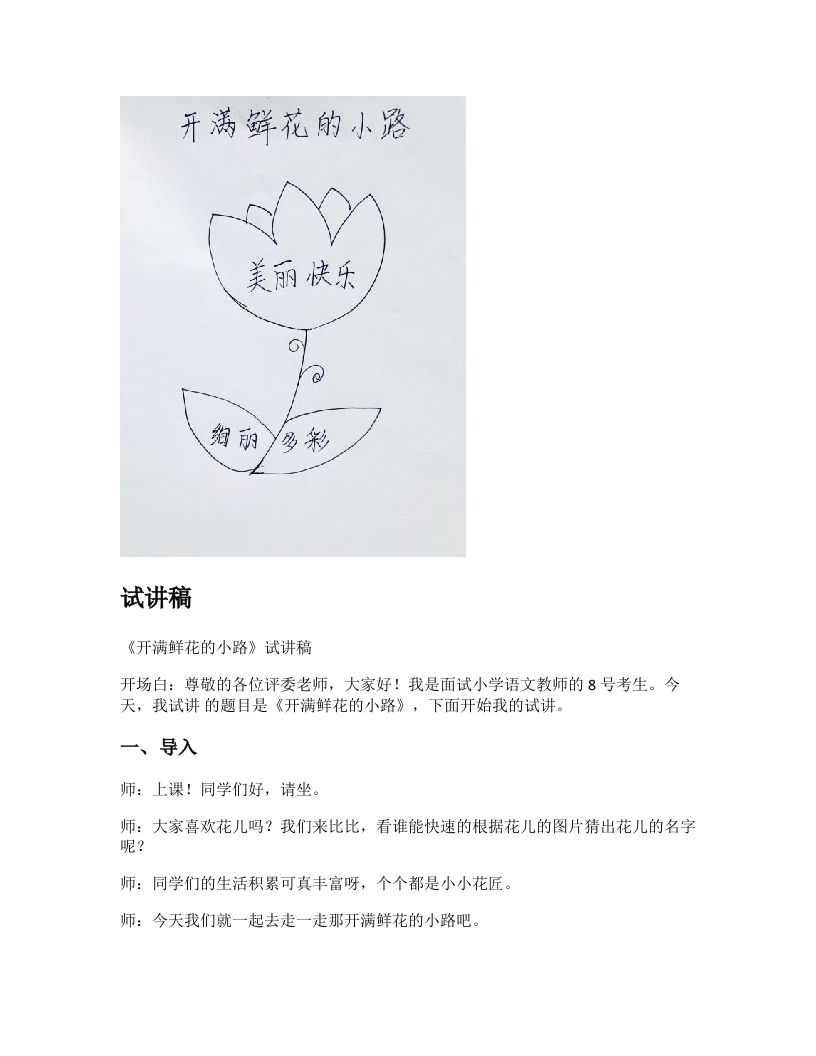 开满鲜花的小路
美丽快乐
绚丽 多彩
试讲稿
《开满鲜花的小路》试讲稿
开场白：尊敬的各位评委老师，大家好！我是面试小学语文教师的 8 号考生。今
天，我试讲 的题目是《开满鲜花的小路》，下面开始我的试讲。
一、导入
师：上课！同学们好，请坐。
师：大家喜欢花儿吗？我们来比比，看谁能快速的根据花儿的图片猜出花儿的名字
呢？
师：同学们的生活积累可真丰富呀，个个都是小小花匠。
师：今天我们就一起去走一走那开满鲜花的小路吧。